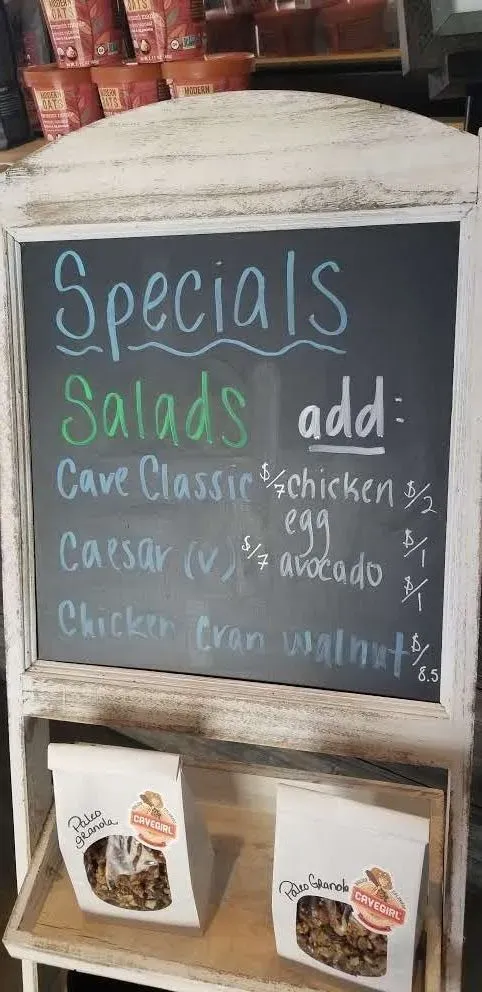 MODERN OATS
MODERN OATS
MODERN OATS
MODERN
Specials
Salads add:
Cave Classic $/7 chicken $/2
egg $/1
Caesar (v) $/7 avocado $/1
Chicken Cran Walnut $/8.5
Paleo granola
CAVEGIRL
Paleo Granola
CAVEGIRL